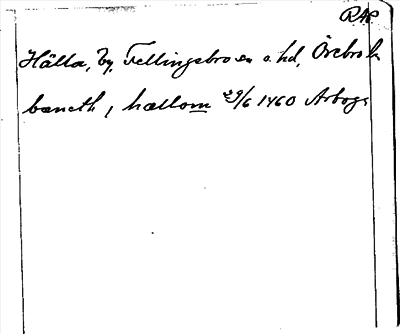 RAP
Hälla, by, Fellingsbro sn o. hd, Örebro l.
bæneth, hællom 29/6 1460 Arboga